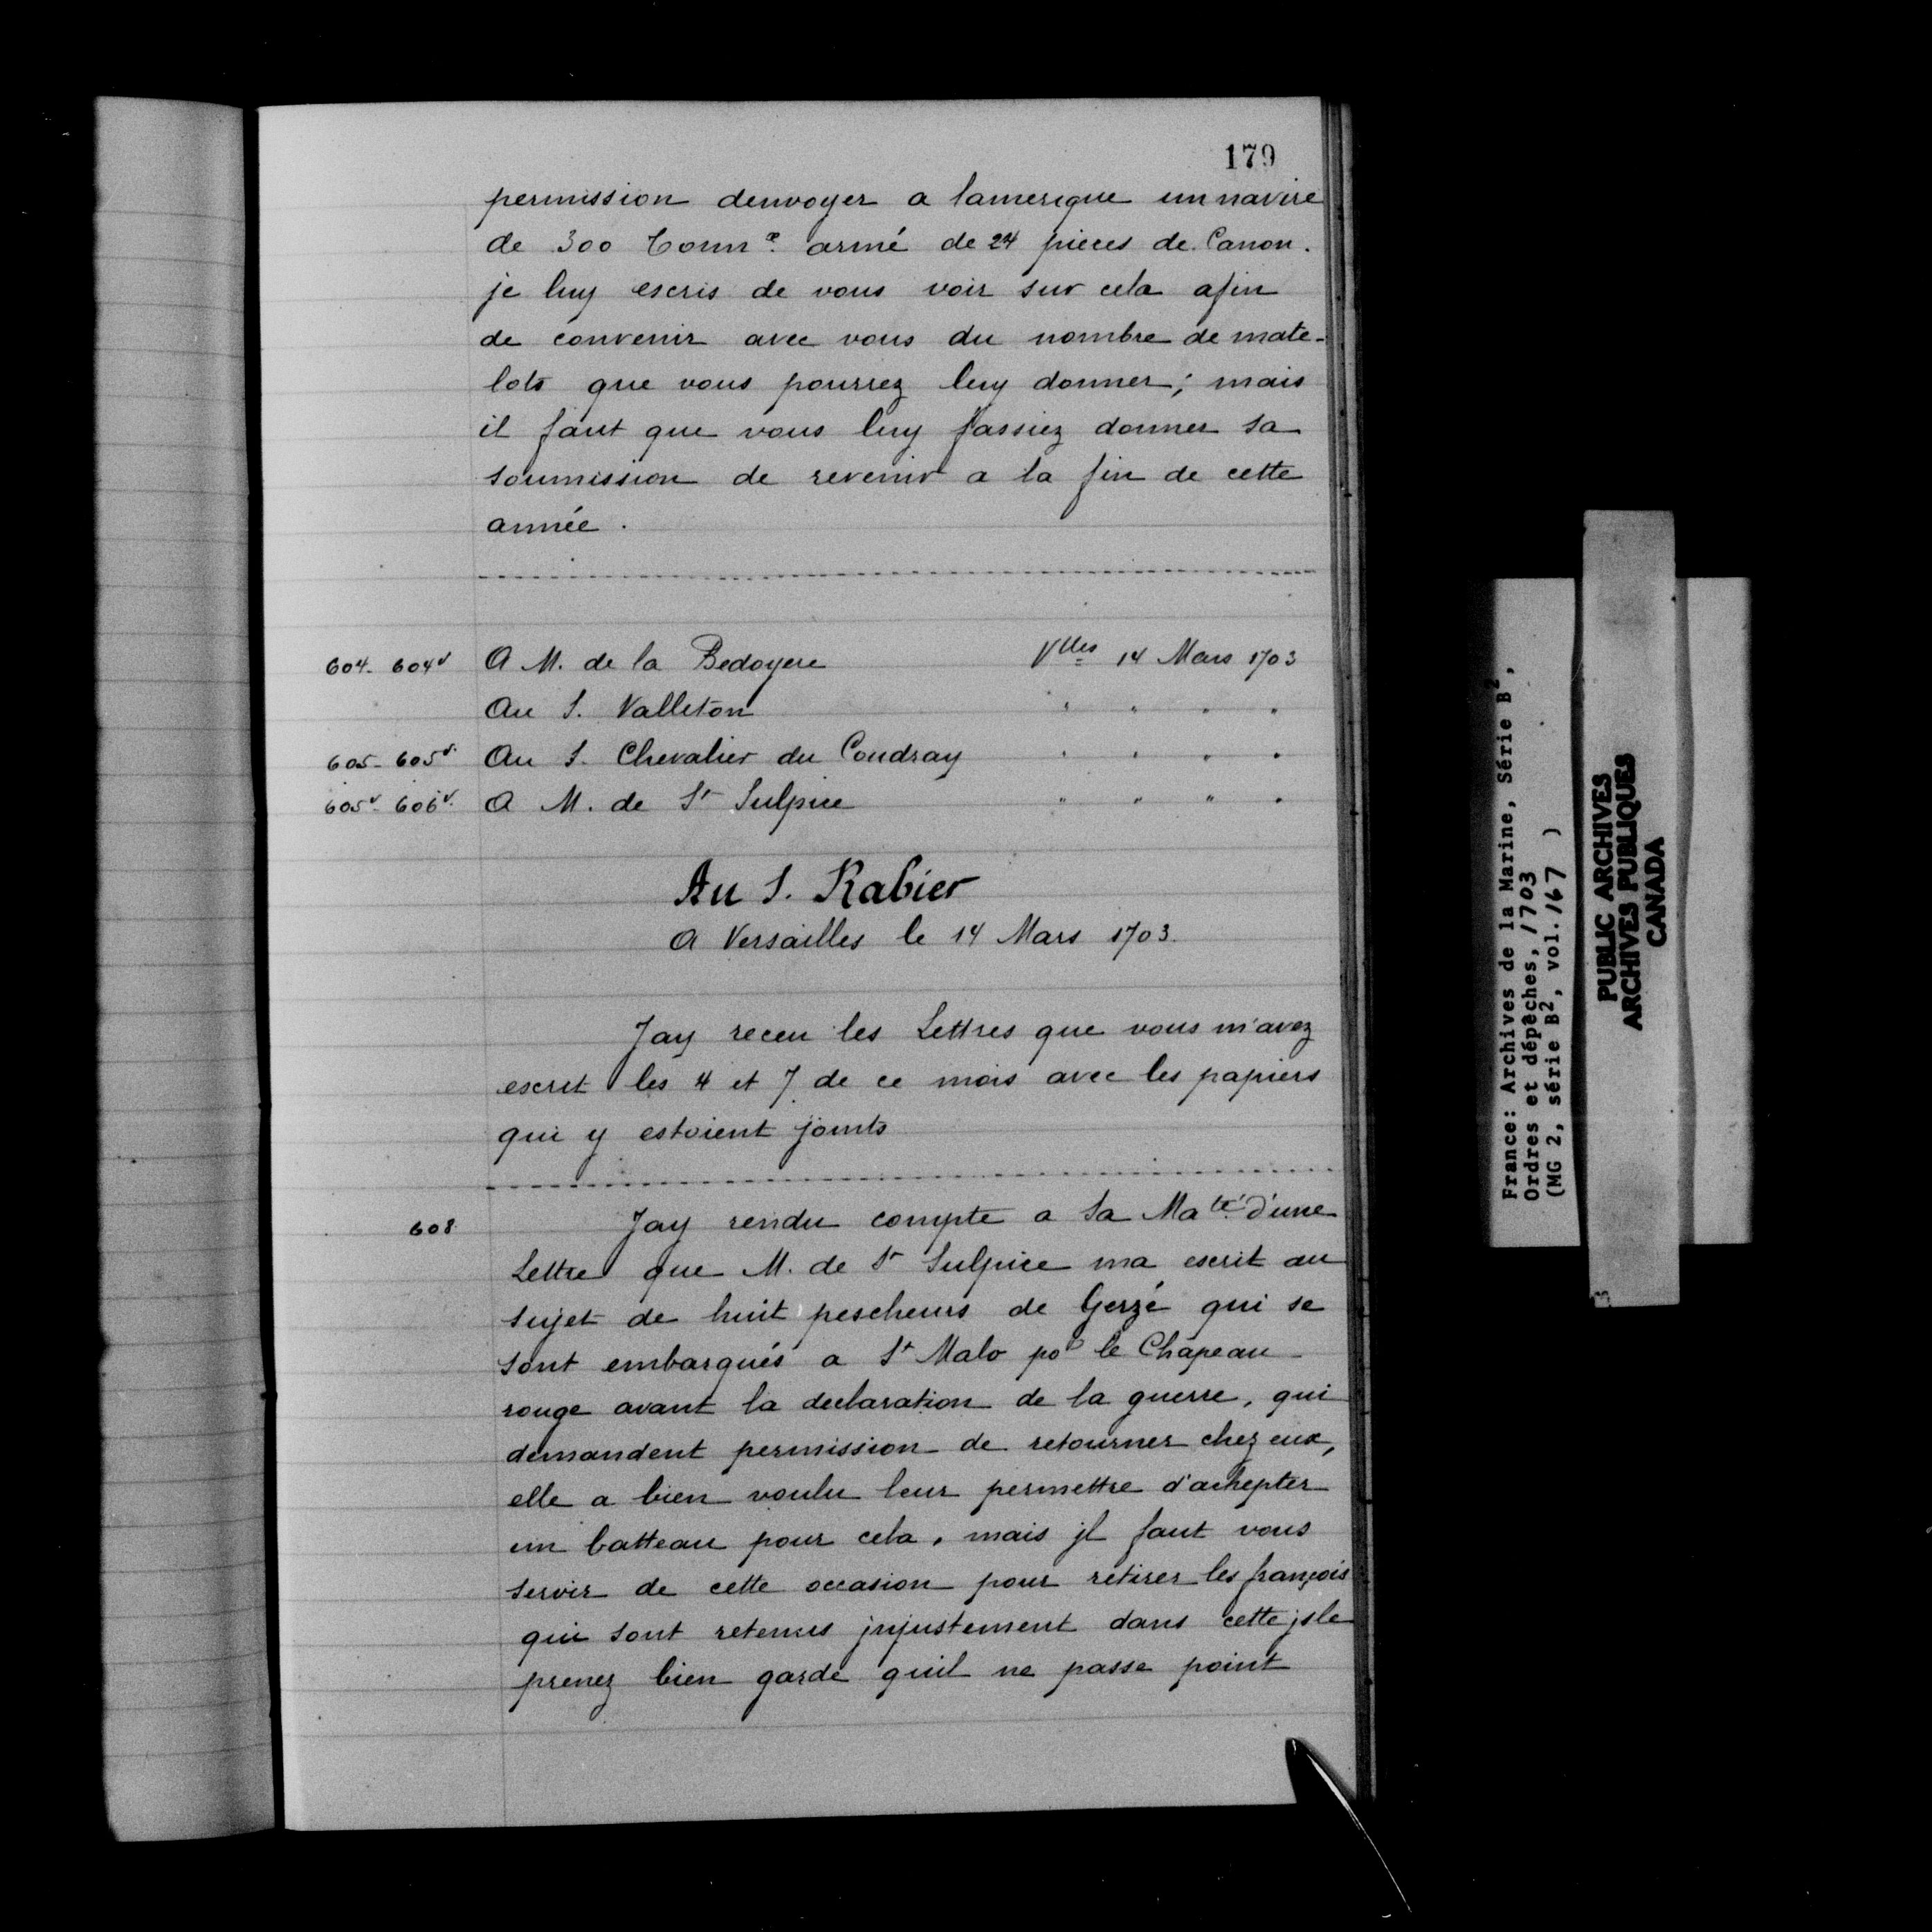 179
permission denvoyer a lamerique un navire
de 300 Tonnx. armé de 24 pieces de Canon.
je luy escris de vous voir sur cela afin
de convenir avec vous du nombre de mate-
lots que vous pourrez luy donner; mais
il faut que vous luy fassiez donner sa
soumission de revenir a la fin de cette
année.
604-604v A M. de la Bedoyere Vlles 14 Mars 1703
Au S. Valleton " " " "
605-605v. Au S. Chevalier du Coudray " " " "
605v-606v. A M. de St Sulpice " " " "
Au S. Rabier
A Versailles le 14 Mars 1703.
Jay receu les Lettres que vous m'avez
escrit les 4 et 7 de ce mois avec les papiers
qui y estoient joints
608 Jay rendu compte a Sa Maté d'une
Lettre que M. de St Sulpice ma escrit au
sujet de huit pescheurs de Gerzé qui se
sont embarqués a St Malo pr le Chapeau
rouge avant la declaration de la guerre, qui
demandent permission de retourner chez eux,
elle a bien voulu leur permettre d'achepter
un batteau pour cela, mais jl faut vous
servir de cette occasion pour retirer les françois
qui sont retenus jnjustement dans cette jsle
prenez bien garde quil ne passe point
France: Archives de la Marine, Série B2,
Ordres et dépêches, 1703
(MG 2, série B2, vol. 167 )
PUBLIC ARCHIVES
ARCHIVES PUBLIQUES
CANADA